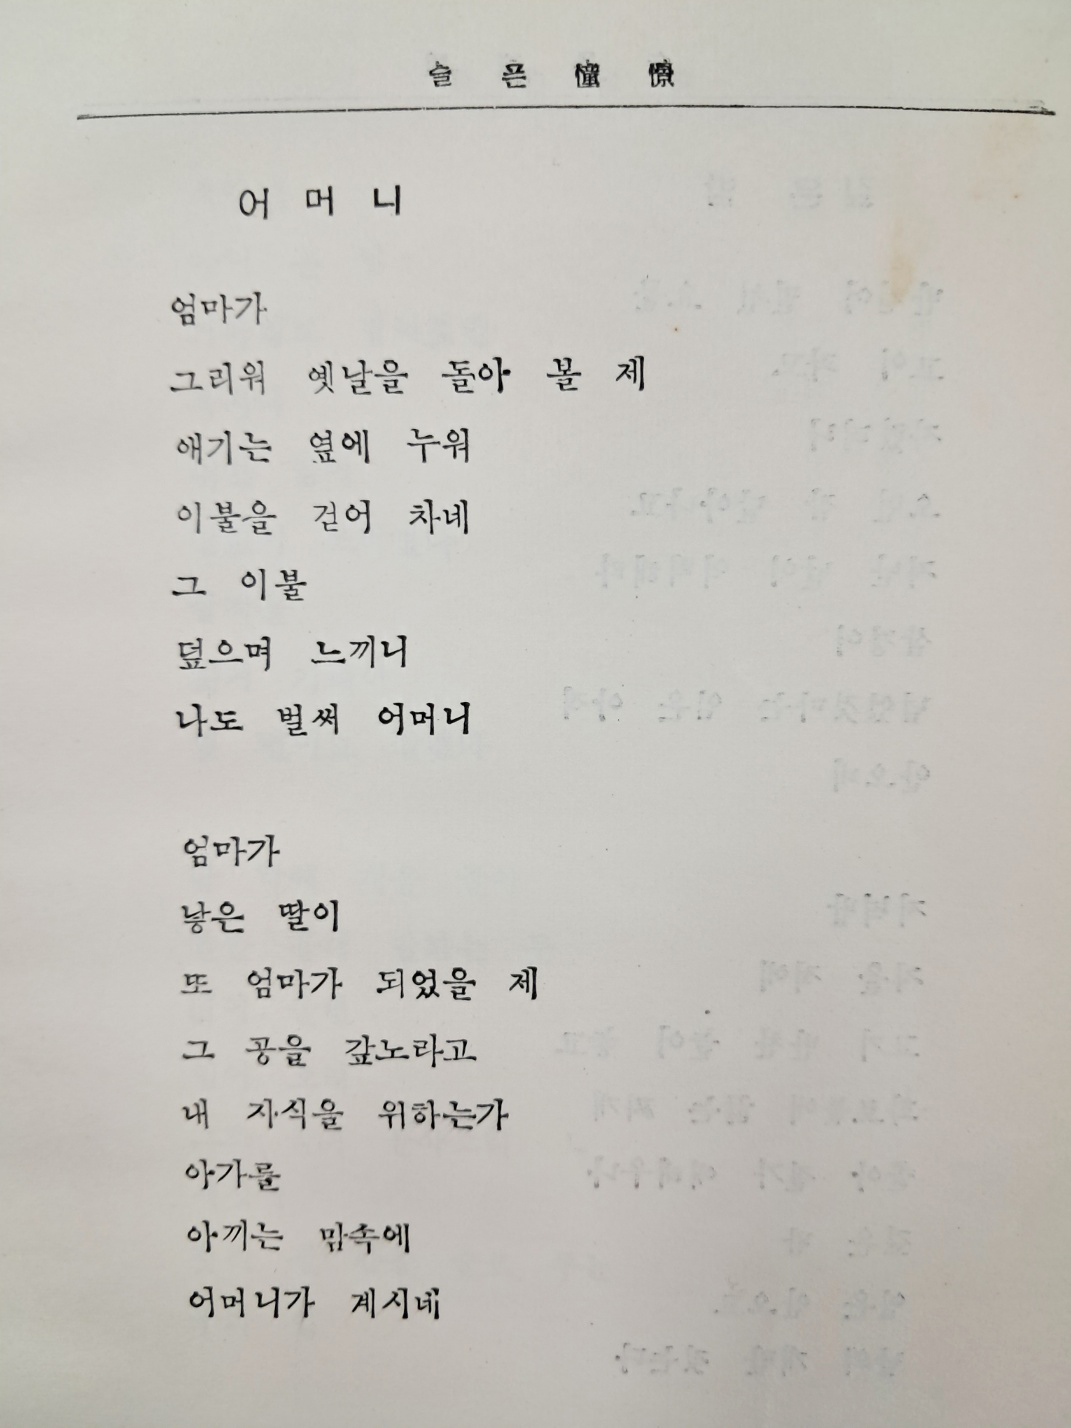 슬픈 憧憬
어머니
엄마가
그리워 옛날을 돌아 볼 제
애기는 옆에 누워
이불을 걷어 차네
그 이불
덮으며 느끼니
나도 벌써 어머니
엄마가
낳은 딸이
또 엄마가 되었을 제
그 공을 갚노라고
내 자식을 위하는가
아가를
아끼는 맘속에
어머니가 계시네